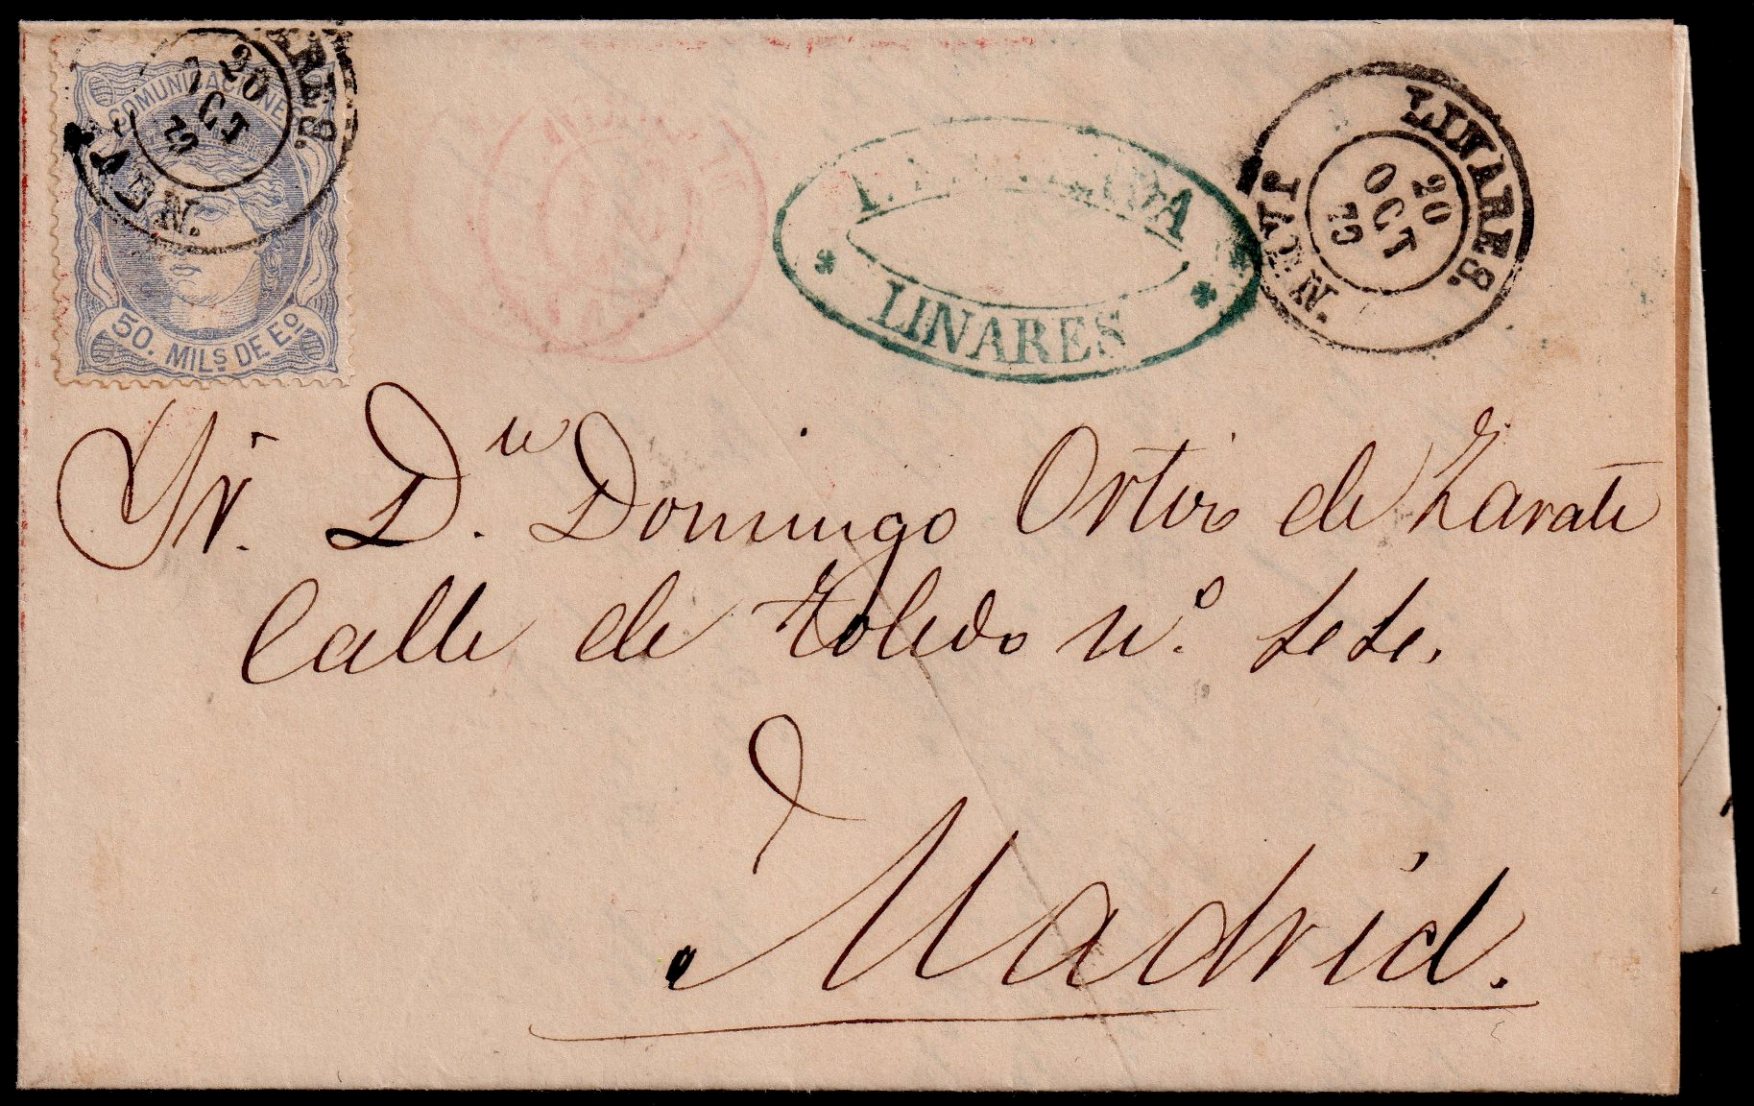 COMUNICACIONES
50. MILS DE Eº
LINARES.
20
OCT
JAEN.
LINARES
LINARES.
20
OCT
JAEN.
Sr. Dn. Domingo Ortiz de Zarate
Calle de Toledo nº.
Madrid.